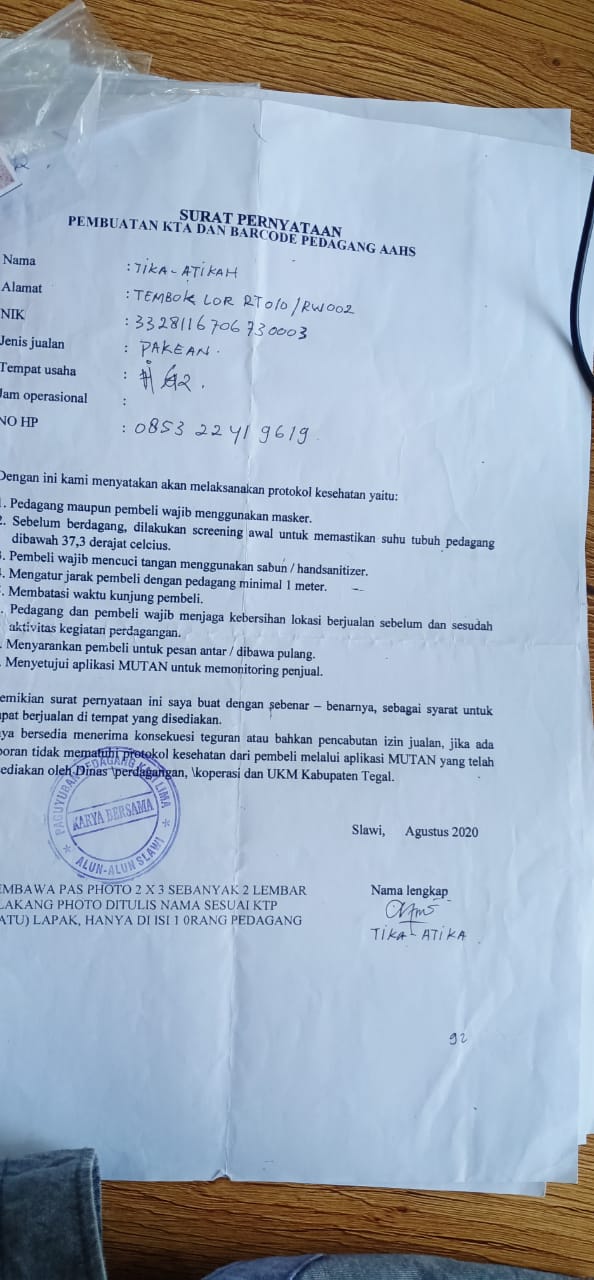 SURAT PERNYATAAN
PEMBUATAN KTA DAN BARCODE PEDAGANG AAHS
Nama : TIKA - ATIKAH
Alamat : TEMBOK LOR RT010/RW002
NIK : 3328116706730003
Jenis jualan : PAKEAN.
Tempat usaha :
Jam operasional :
NO HP : 0853 2241 9619
Dengan ini kami menyatakan akan melaksanakan protokol kesehatan yaitu:
. Pedagang maupun pembeli wajib menggunakan masker.
2. Sebelum berdagang, dilakukan screening awal untuk memastikan suhu tubuh pedagang
dibawah 37,3 derajat celcius.
. Pembeli wajib mencuci tangan menggunakan sabun / handsanitizer.
. Mengatur jarak pembeli dengan pedagang minimal 1 meter.
. Membatasi waktu kunjung pembeli.
. Pedagang dan pembeli wajib menjaga kebersihan lokasi berjualan sebelum dan sesudah
aktivitas kegiatan perdagangan.
. Menyarankan pembeli untuk pesan antar / dibawa pulang.
. Menyetujui aplikasi MUTAN untuk memonitoring penjual.
emikian surat pernyataan ini saya buat dengan sebenar – benarnya, sebagai syarat untuk
pat berjualan di tempat yang disediakan.
ya bersedia menerima konsekuesi teguran atau bahkan pencabutan izin jualan, jika ada
poran tidak mematuhi protokol kesehatan dari pembeli melalui aplikasi MUTAN yang telah
ediakan oleh Dinas \perdagangan, \koperasi dan UKM Kabupaten Tegal.
PAGUYUBAN PEDAGANG KAKI LIMA
KARYA BERSAMA
ALUN-ALUN SLAWI
Slawi, Agustus 2020
EMBAWA PAS PHOTO 2 X 3 SEBANYAK 2 LEMBAR
LAKANG PHOTO DITULIS NAMA SESUAI KTP
ATU) LAPAK, HANYA DI ISI 1 0RANG PEDAGANG
Nama lengkap
TIKA - ATIKA
92